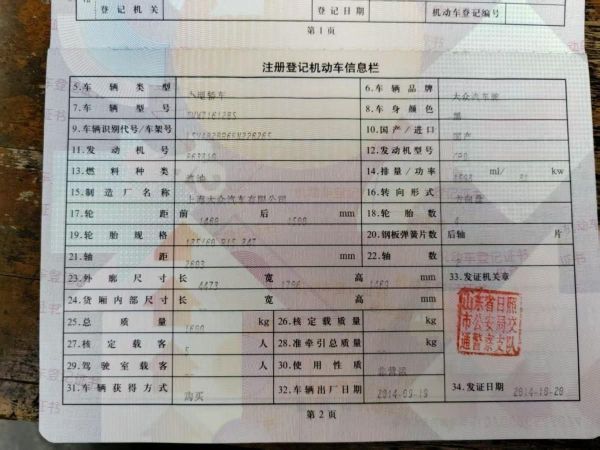 登记机关 登记日期 机动车登记编号
第1页
注册登记机动车信息栏
5.车辆类型 轿车 6.车辆品牌 大众汽车牌
7.车辆型号 8.车身颜色 黑
9.车辆识别代号/车架号 10.国产/进口 国产
11.发动机号 12.发动机型号
13.燃料种类 汽油 14.排量/功率 1598 ml/ kw
15.制造厂名称 上海大众汽车有限公司 16.转向形式 方向盘
17.轮距 前 1460 后 1500 mm 18.轮胎数 4
19.轮胎规格 20.钢板弹簧片数 后轴 片
21.轴距 2603 mm 22.轴数
23.外廓尺寸 长 4473 宽 1706 高 1460 mm 33.发证机关章
24.货厢内部尺寸 长 宽 高 mm
山东省日照市公安局交通警察支队
25.总质量 kg 26.核定载质量 kg
27.核定载客 5 人 28.准牵引总质量 kg
29.驾驶室载客 人 30.使用性质 非营运
31.车辆获得方式 购买 32.车辆出厂日期 2014-09-19 34.发证日期 2014-10-20
第2页